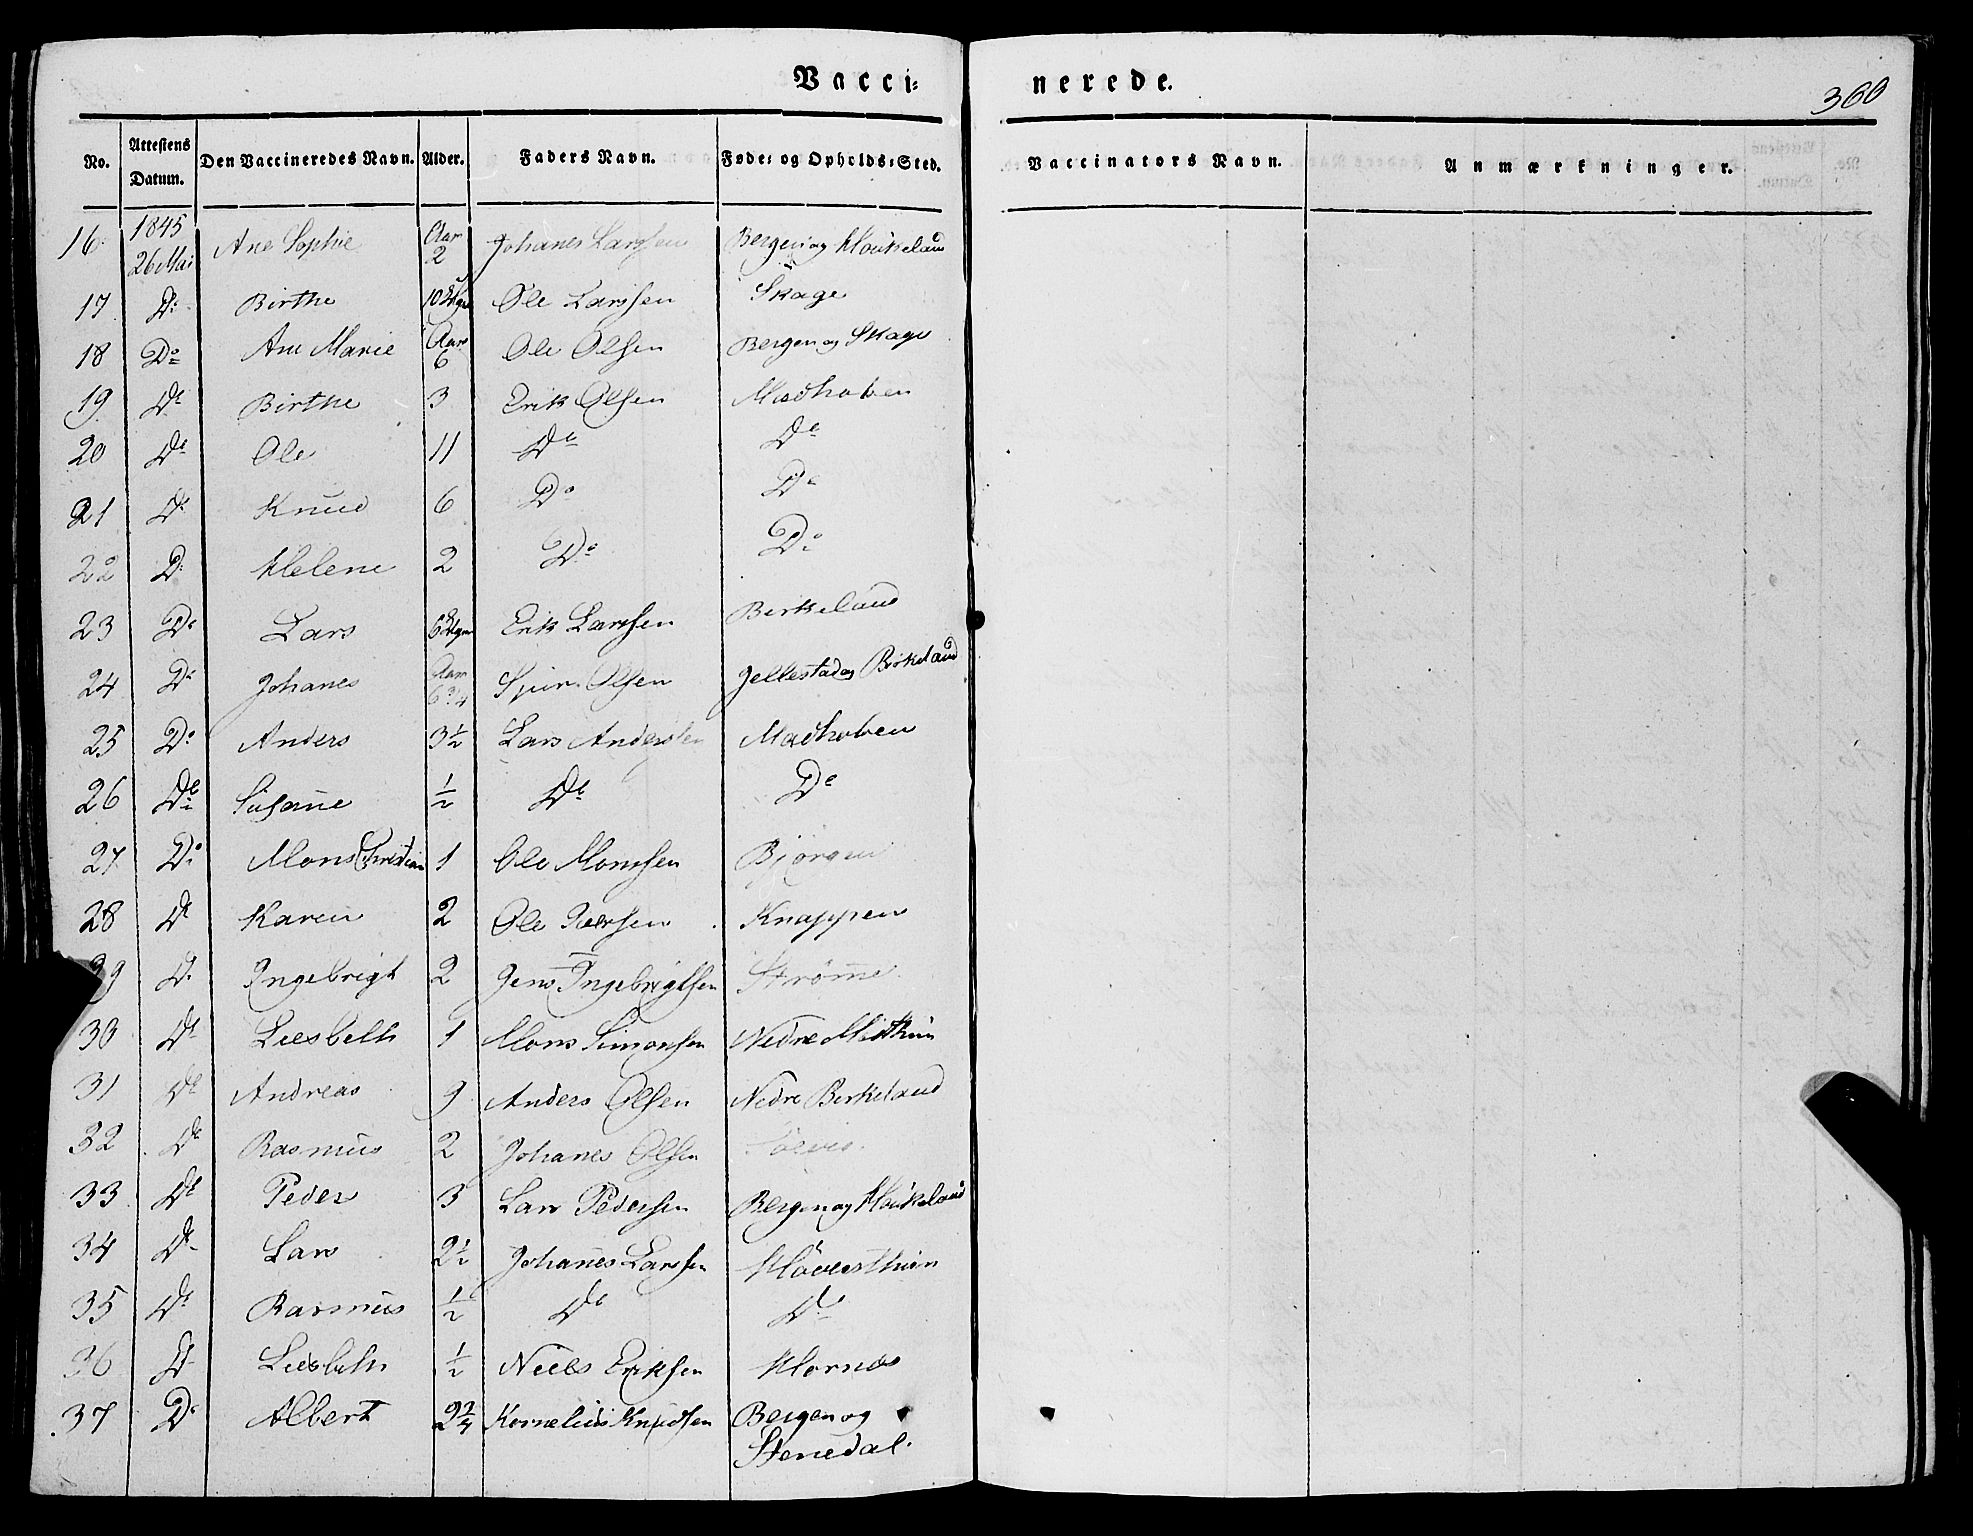 Vacci=
nerede.
360
No. Attestens Datum. Den Vaccineredes Navn. Alder. Faders Navn. Føde= og Opholds=Sted. Vaccinators Navn. Anmærkninger.
16 1845 26 Mai Ane Sophie Aar 2 Johanes Larssen Bergen og Houkeland
17 Do Birthe 10 Ole Larssen Skage
18 Do Ane Marie Aar 6 Ole Olsen Bergen og Skage
19 Do Birthe 3 Erik Olsen Madhoben
20 Do Ole 11 Do Do
21 Do Knud 6 Do Do
22 Do Helene 2 Do Do
23 Do Lars 6 Erik Larssen Birkeland
24 Do Johanes Aar 6 3/4 Olsen Jellestad og Birkeland
25 Do Anders 3 1/2 Lars Anderssen Madhoben
26 Do Susanne 1/2 Do Do
27 Do Mons Christian 1 Ole Monssen Bjørgen
28 Do Karen 2 Ole Peersen Knappen
29 Do Ingebrigt 2 Jens Ingebrigtsen Strømme
30 Do Liesbeth 1 Mons Simonsen Nedre
31 Do Andreas 9 Anders Olsen Nedre Birkeland
32 Do Rasmus 2 Johanes Olsen
33 Do Peder 3 Lars Pedersen Bergen og Houkeland
34 Do Lars 2 1/2 Johanes Larssen
35 Do Rasmus 1/2 Do Do
36 Do Liesbeth 1/2 Niels Eriksen Hornes
37 Do Albert Kornelius Knudsen Bergen og
Stenedal.